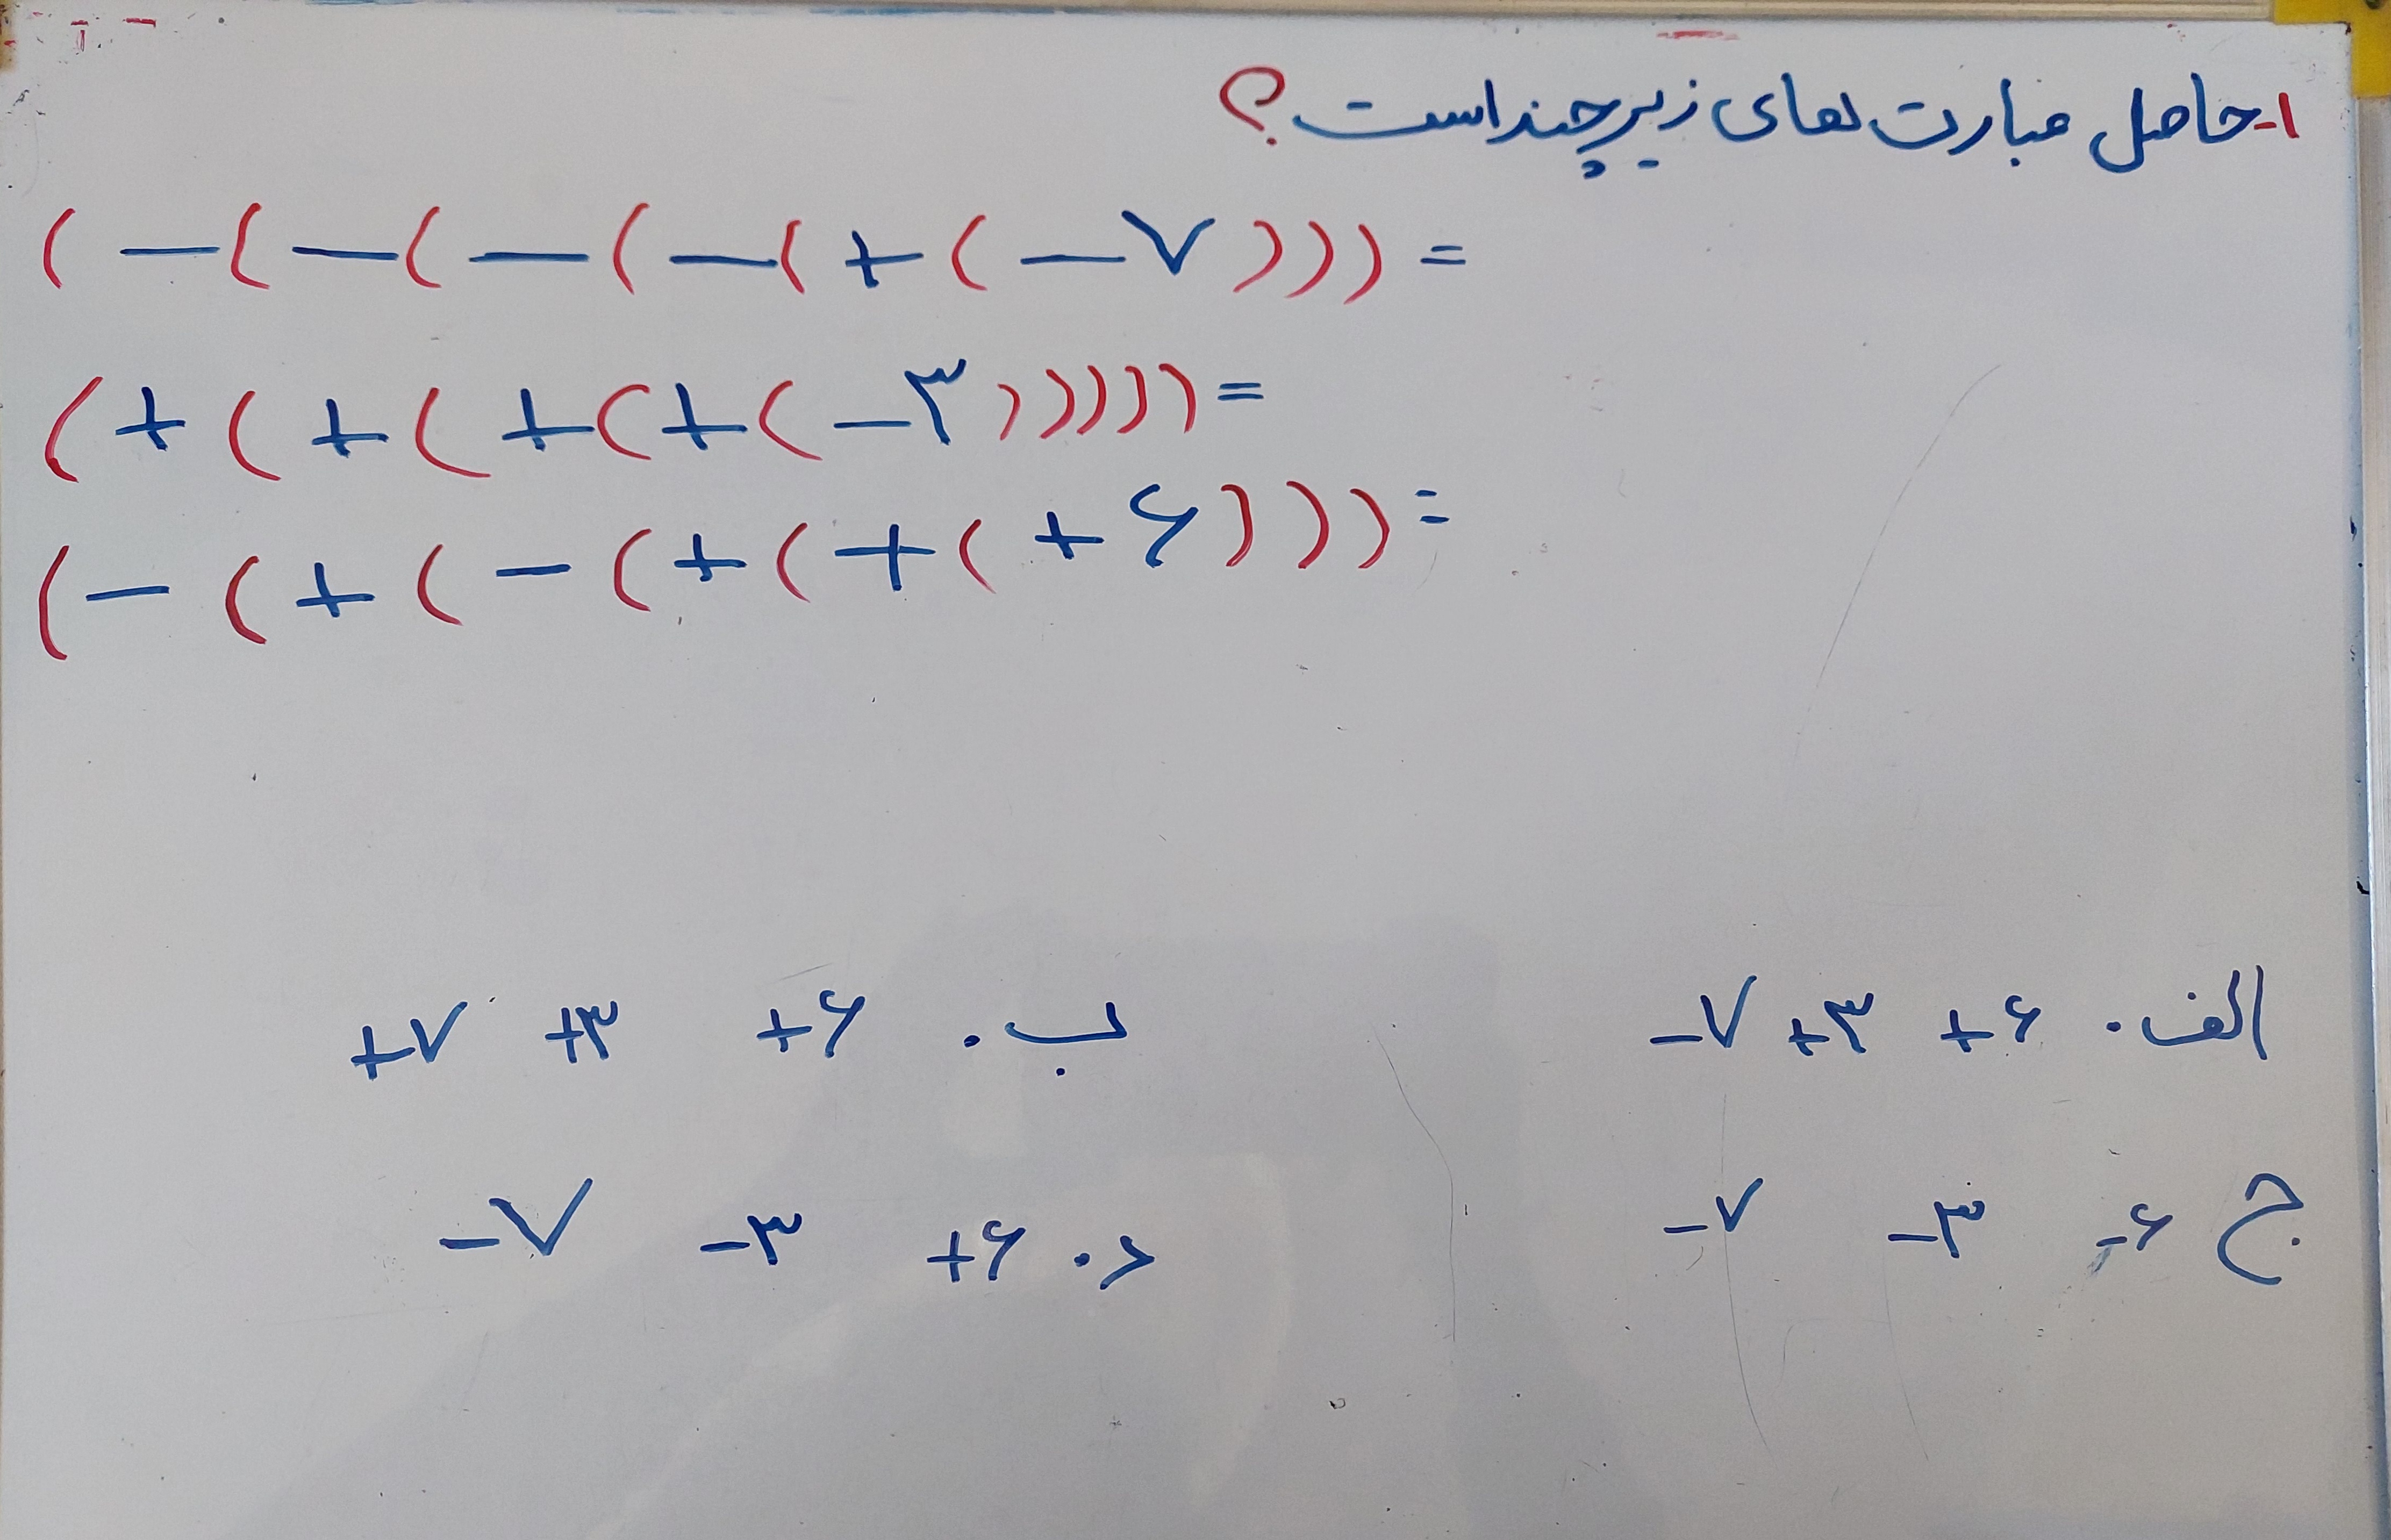 ۱-حاصل عبارت های زیر چند است؟
( - ( - ( - ( - ( + ( - ۷ ) ) ) =
( + ( + ( + ( + ( - ۳ ) ) ) ) ) ) =
( - ( + ( - ( + ( + ( + ۶ ) ) ) =
الف. +۶ +۳ -۷
ب. +۶ +۳ +۷
ج -۶ -۳ -۷
د. +۶ -۳ -۷